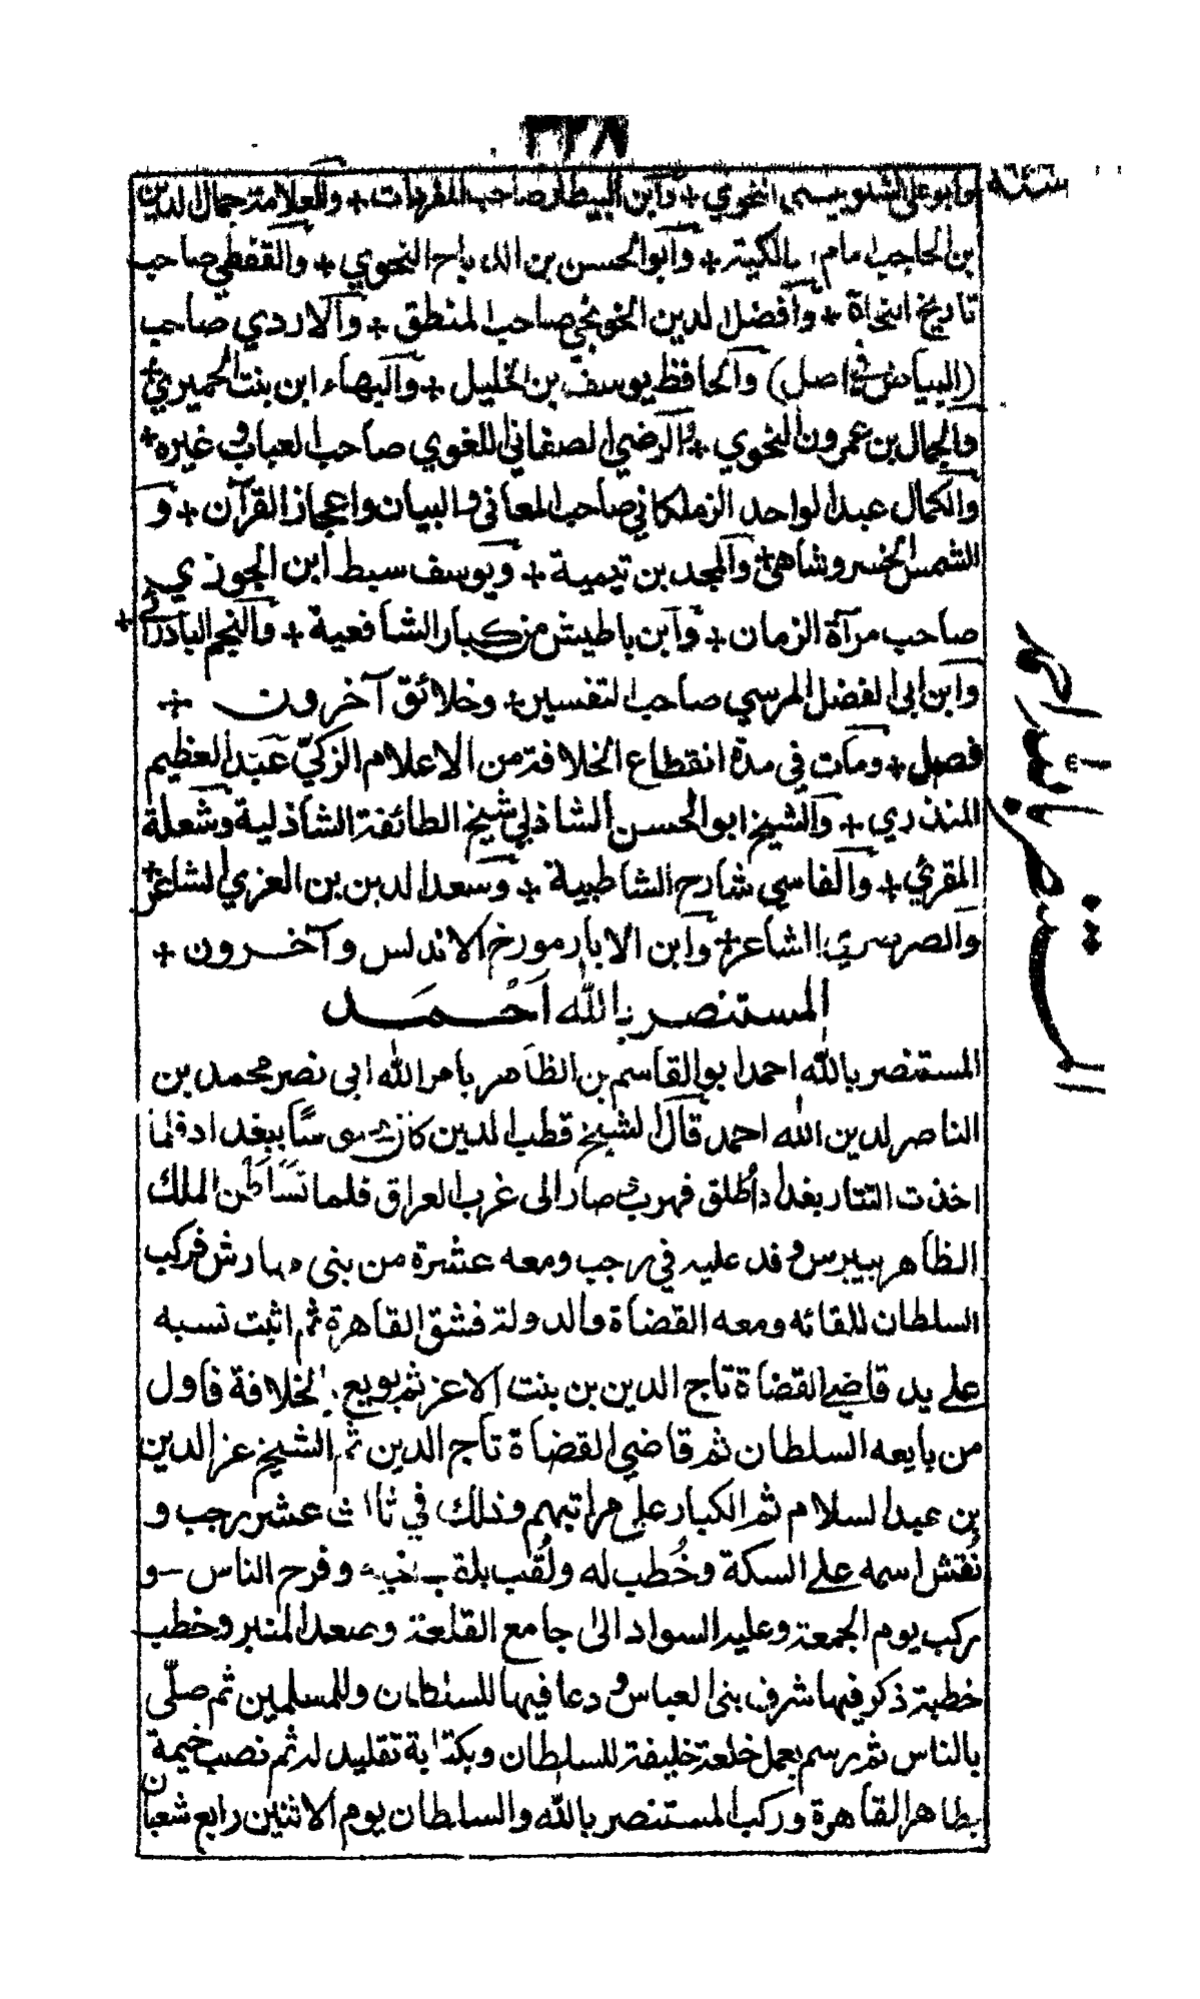 ٣٢٨
وابو علي الشلوبيسي النحوي + وابن البيطار صاحب المفردات + والعلامة جمال الدين
بن الحاجب امام المالكية + وابو الحسن بن الدباج النحوي + والقفطي صاحب
تاريخ النحاة + وأفضل الدين الخونجي صاحب المنطق + والازدي صاحب
(البياض في اصل) والحافظ يوسف بن الخليل + والبهاء ابن بنت الحميري +
والجمال بن عمرون النحوي + والرضي الصغاني اللغوي صاحب العباب وغيره +
والكمال عبد الواحد الزملكاني صاحب المعاني والبيان واعجاز القرآن + و
الشمس الخسروشاهي + والمجد بن تيمية + ويوسف سبط ابن الجوزي
صاحب مرآة الزمان + وابن باطيش من كبار الشافعية + والنجم البادرائي +
وابن ابي الفضل المرسي صاحب التفسير + وخلائق آخرون +
فصل + ومات في مدة انقطاع الخلافة من الاعلام الزكيّ عبد العظيم
المنذري + والشيخ ابو الحسن الشاذلي شيخ الطائفة الشاذلية وشعلة
المقرئ + والفاسي شارح الشاطبية + وسعد الدين بن العزي الشاعر +
والصرصري الشاعر + وابن الابار مورخ الاندلس وآخرون +
المستنصر بالله احمد
المستنصر بالله احمد ابو القاسم بن الظاهر بامر الله ابي نصر محمد بن
الناصر لدين الله احمد قال الشيخ قطب الدين كان محبوسا ببغداد فلما
اخذت التتار بغداد أطلق فهرب وصار الى غرب العراق فلما تسلطن الملك
الظاهر بيبرس وفد عليه في رجب ومعه عشرة من بني مهارش فركب
السلطان للقائه ومعه القضاة والدولة فشق القاهرة ثم اثبت نسبه
على يد قاضي القضاة تاج الدين بن بنت الاعز ثم بويع بالخلافة فاول
من بايعه السلطان ثم قاضي القضاة تاج الدين ثم الشيخ عز الدين
بن عبد السلام ثم الكبار على مراتبهم وذلك في ثالث عشر رجب و
نُقش اسمه على السكة وخُطب له ولُقب بلقب اخيه وفرح الناس - و
ركب يوم الجمعة وعليه السواد الى جامع القلعة وصعد المنبر وخطب
خطبة ذكر فيها شرف بني العباس ودعا فيها للسلطان وللمسلمين ثم صلّى
بالناس ثم رسم بعمل خلعة خليفة للسلطان وبكتابة تقليد له ثم نصب خيمة
بظاهر القاهرة وركب المستنصر بالله والسلطان يوم الاثنين رابع شعبان
المستنصر بالله احمد